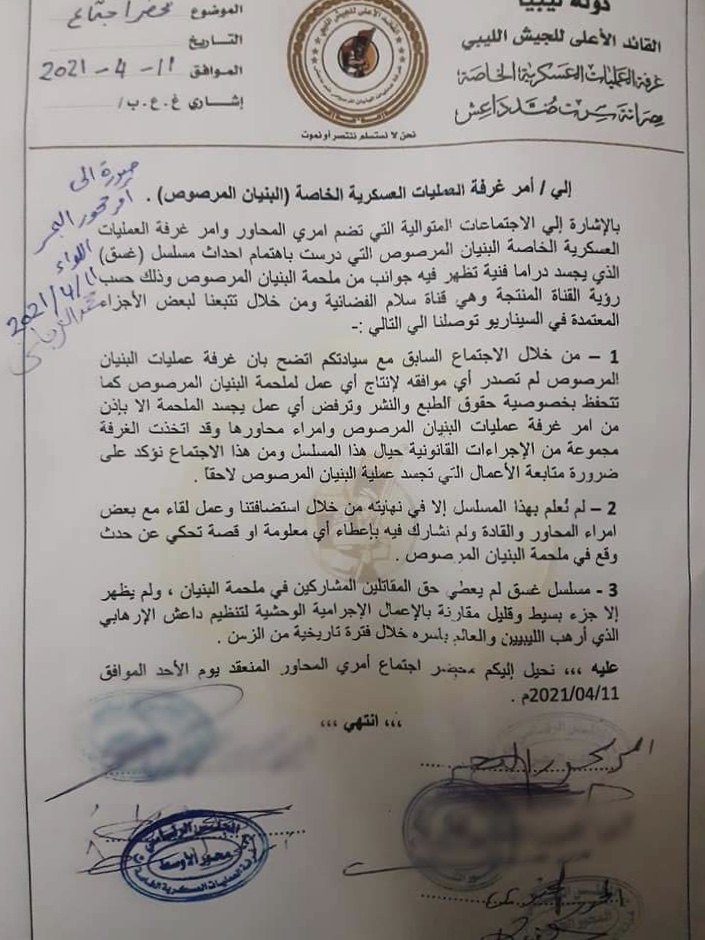 دولة ليبيا
القائد الأعلى للجيش الليبي
غرفة العمليات العسكرية الخاصة
مصراتة سرت ضد داعش
القائد الأعلى للجيش الليبي
نحن لا نستسلم ننتصر أو نموت
الموضوع محضر اجتماع
التاريخ
الموافق 11-4-2021
إشاري غ.ع.ب/
صورة الى
أمر محور البحر
اللواء
2021/4/11
إلي / أمر غرفة العمليات العسكرية الخاصة (البنيان المرصوص) .
بالإشارة إلي الاجتماعات المتوالية التي تضم امري المحاور وامر غرفة العمليات
العسكرية الخاصة البنيان المرصوص التي درست باهتمام احداث مسلسل (غسق)
الذي يجسد دراما فنية تظهر فيه جوانب من ملحمة البنيان المرصوص وذلك حسب
رؤية القناة المنتجة وهي قناة سلام الفضائية ومن خلال تتبعنا لبعض الأجزاء
المعتمدة في السيناريو توصلنا الي التالي :-
1 – من خلال الاجتماع السابق مع سيادتكم اتضح بان غرفة عمليات البنيان
المرصوص لم تصدر أي موافقه لإنتاج أي عمل لملحمة البنيان المرصوص كما
تتحفظ بخصوصية حقوق الطبع والنشر وترفض أي عمل يجسد الملحمة الا بإذن
من امر غرفة عمليات البنيان المرصوص وامراء محاورها وقد اتخذت الغرفة
مجموعة من الإجراءات القانونية حيال هذا المسلسل ومن هذا الاجتماع نؤكد على
ضرورة متابعة الأعمال التي تجسد عملية البنيان المرصوص لاحقا .
2 – لم نُعلم بهذا المسلسل إلا في نهايته من خلال استضافتنا وعمل لقاء مع بعض
امراء المحاور والقادة ولم نشارك فيه بإعطاء أي معلومة او قصة تحكي عن حدث
وقع في ملحمة البنيان المرصوص .
3 - مسلسل غسق لم يعطي حق المقاتلين المشاركين في ملحمة البنيان ، ولم يظهر
إلا جزء بسيط وقليل مقارنة بالإعمال الإجرامية الوحشية لتنظيم داعش الإرهابي
الذي أرهب الليبيين والعالم بأسره خلال فترة تاريخية من الزمن .
عليه ،،، نحيل إليكم محضر اجتماع أمري المحاور المنعقد يوم الأحد الموافق
2021/04/11م .
،،، انتهي ،،،
المجلس الرئاسي
محور الأوسط
غرفة العمليات العسكرية الخاصة